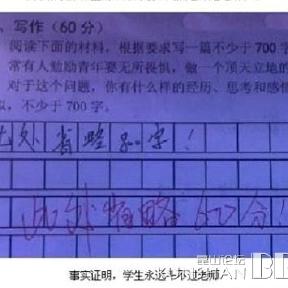 、写作(60 分)
阅读下面的材料，根据要求写一篇不少于 700字
常有人勉励青年要无所畏惧，做一个顶天立地的
对于这个问题，你有什么样的经历、思考和感悟
以，不少于 700 字。
此处省略 字！
此处省略60分！
昆山论坛
事实证明，学生永远斗不过老师